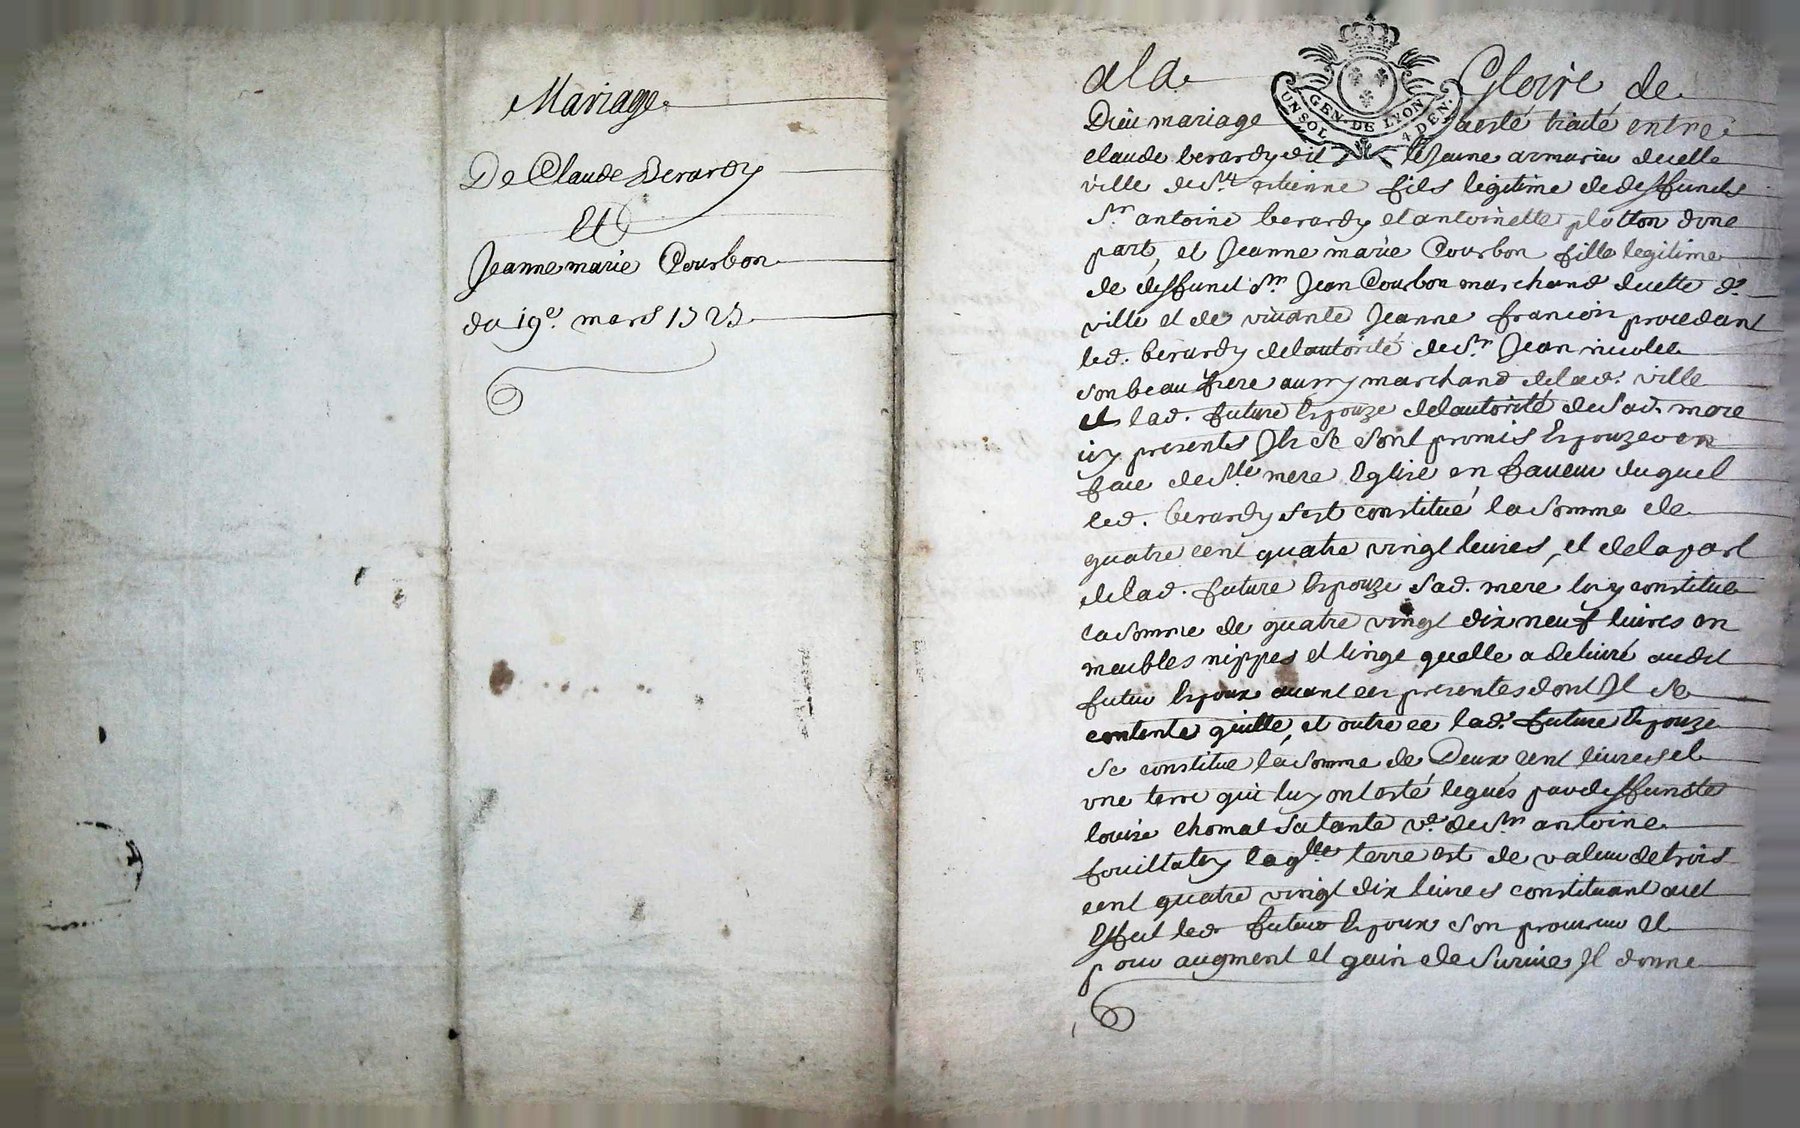 Mariage
De Claude Berardy
Et
Jeanne marie Courbon
du 19e. mars 1725
a la Gloire de
UN SOL GEN. DE LYON 4 DEN.
Dieu mariage a esté traité entre
claude berardy dit le Jeune armurier de cette
ville de St. estienne fils legitime de deffuncts
Sr. antoine berardy et antoinette plotton dune
part, et Jeanne marie Courbon fille legitime
de deffunct Sr. Jean Courbon marchand de cette d.
ville et de vivante Jeanne francoin procedant
led. berardy de lautorité de Sr. Jean nicolet
son beau frere aussy marchand de lad. ville
et lad. future Espouze de lautorité de Sad. mere
icy presents Ils se sont promis Espouzer en
face de Ste. mere Eglise en faveur duquel
led. berardy sest constitué la Somme de
quatre cent quatre vingt livres, et de la part
de lad. future Espouze Sad. mere luy constitue
la somme de quatre vingt dix neuf livres en
meubles nippes et linge quelle a delivré audit
futur Espoux avant ces presentes dont Il se
contente quitte, et outre ce lad. future Espouze
se constitue la Somme de Deux cent livres et
une terre qui luy ont esté legués par deffuncte
louize chomat sa tante ve. de Sr. antoine
fouillatey laqlle terre est de valeur de trois
cent quatre vingt dix livres constituant audt
Effect led. futur Espoux son procureur et
pour augment et gain de Survie Il donne